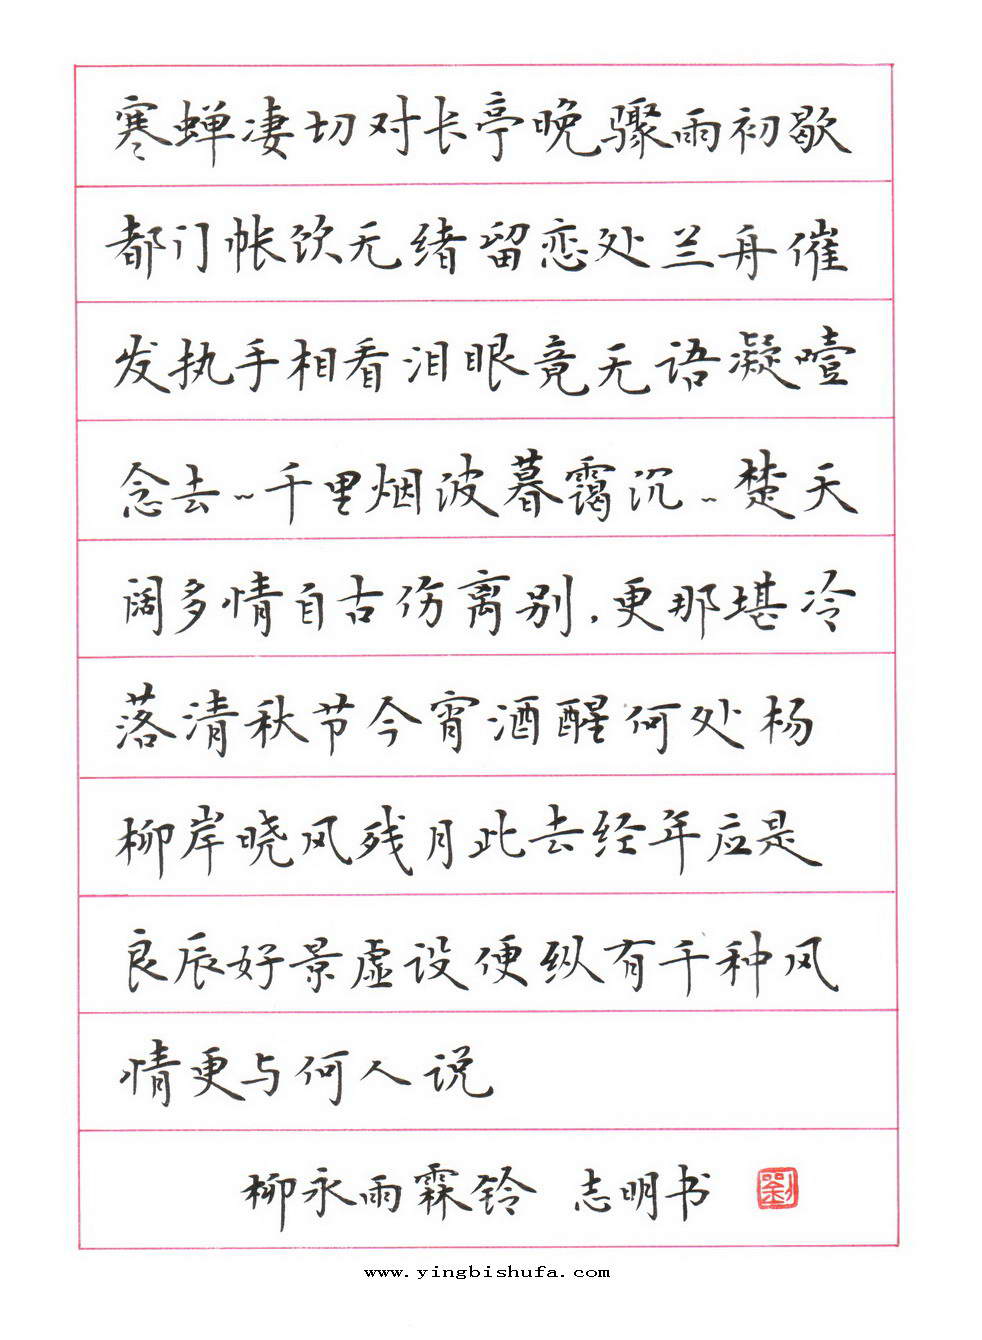 寒蝉凄切对长亭晚骤雨初歇
都门帐饮无绪留恋处兰舟催
发执手相看泪眼竟无语凝噎
念去~千里烟波暮霭沉~楚天
阔多情自古伤离别,更那堪冷
落清秋节今宵酒醒何处杨
柳岸晓风残月此去经年应是
良辰好景虚设便纵有千种风
情更与何人说
柳永雨霖铃 志明书 劉
www.yingbishufa.com